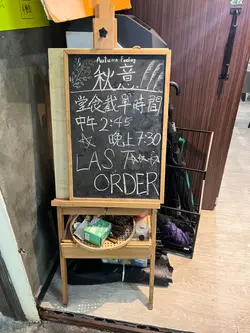 Autumn Feeling
秋意
堂食截單時間
中午 2:45
晚上 7:30
LAST
ORDER